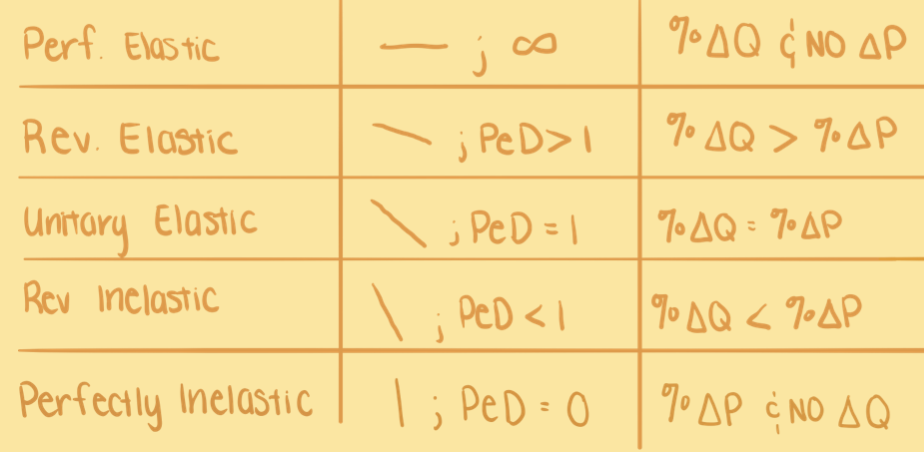 Perf. Elastic — ; ∞ %ΔQ & NO ΔP
Rev. Elastic ; PeD > 1 %ΔQ > %ΔP
Unitary Elastic ; PeD = 1 %ΔQ = %ΔP
Rev Inelastic ; PeD < 1 %ΔQ < %ΔP
Perfectly Inelastic | ; PeD = 0 %ΔP & NO ΔQ